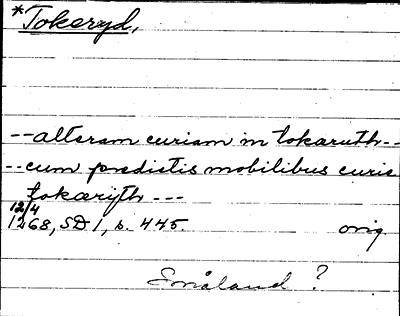 *Tokeryd,
--alteram curiam in tokaruth--
--cum predictis mobilibus curie
tokærijth---
12/4
1268, SD 1, s. 445. orig
Småland?